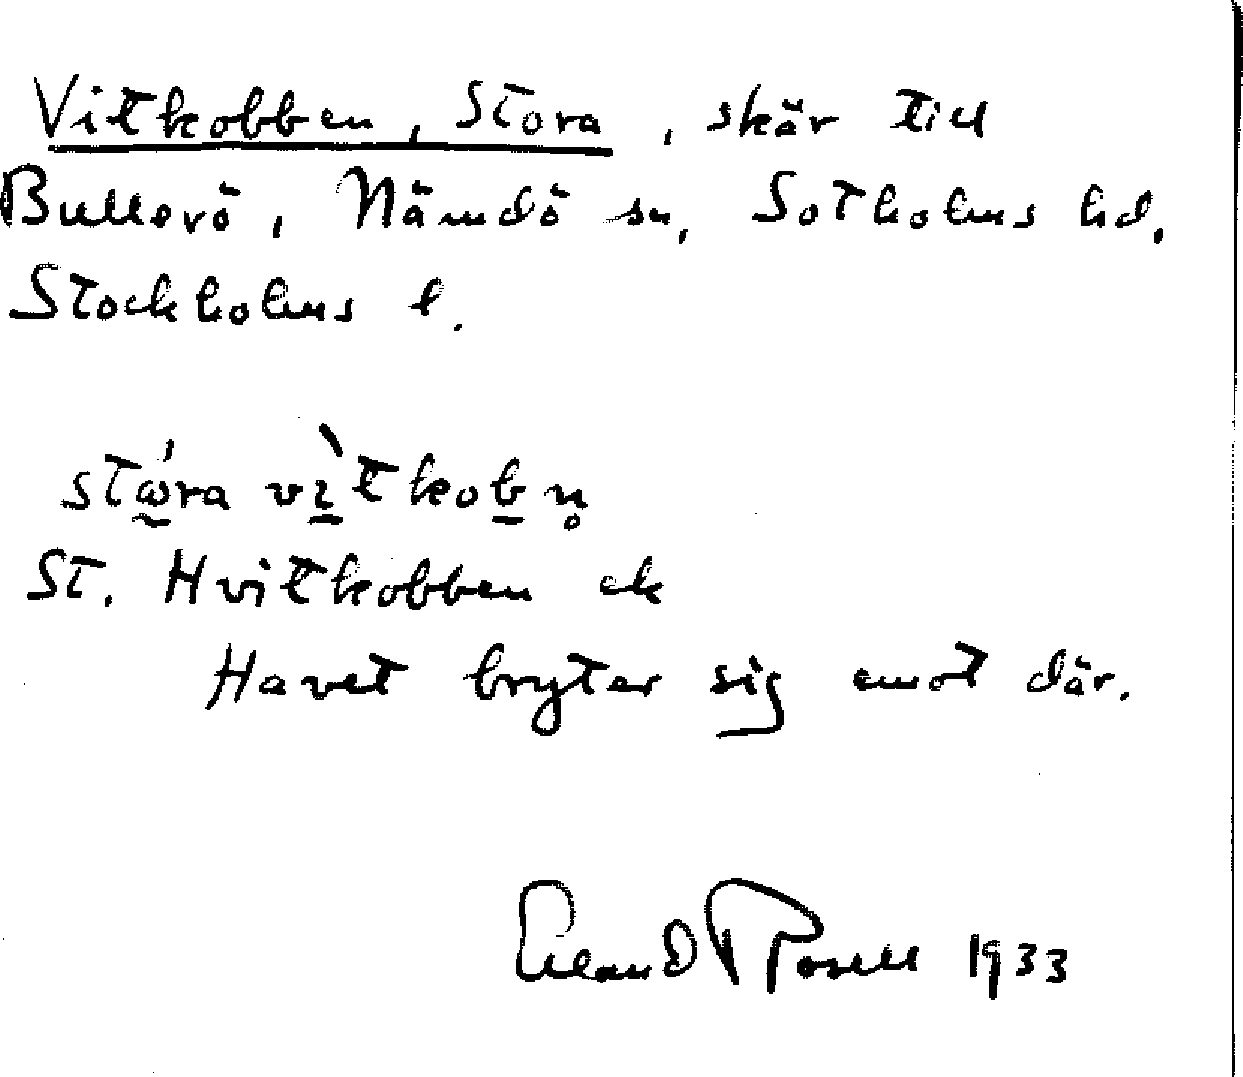 Vitkobben, Stora, skär till
Bullerö, Nämdö sn, Sotholms hd,
Stockholms l.
stώ̰ra vɪ̱̀tkoḇn̥
St. Hvitkobben ek
Havet bryter sig emot där.
Erland Rosell 1933